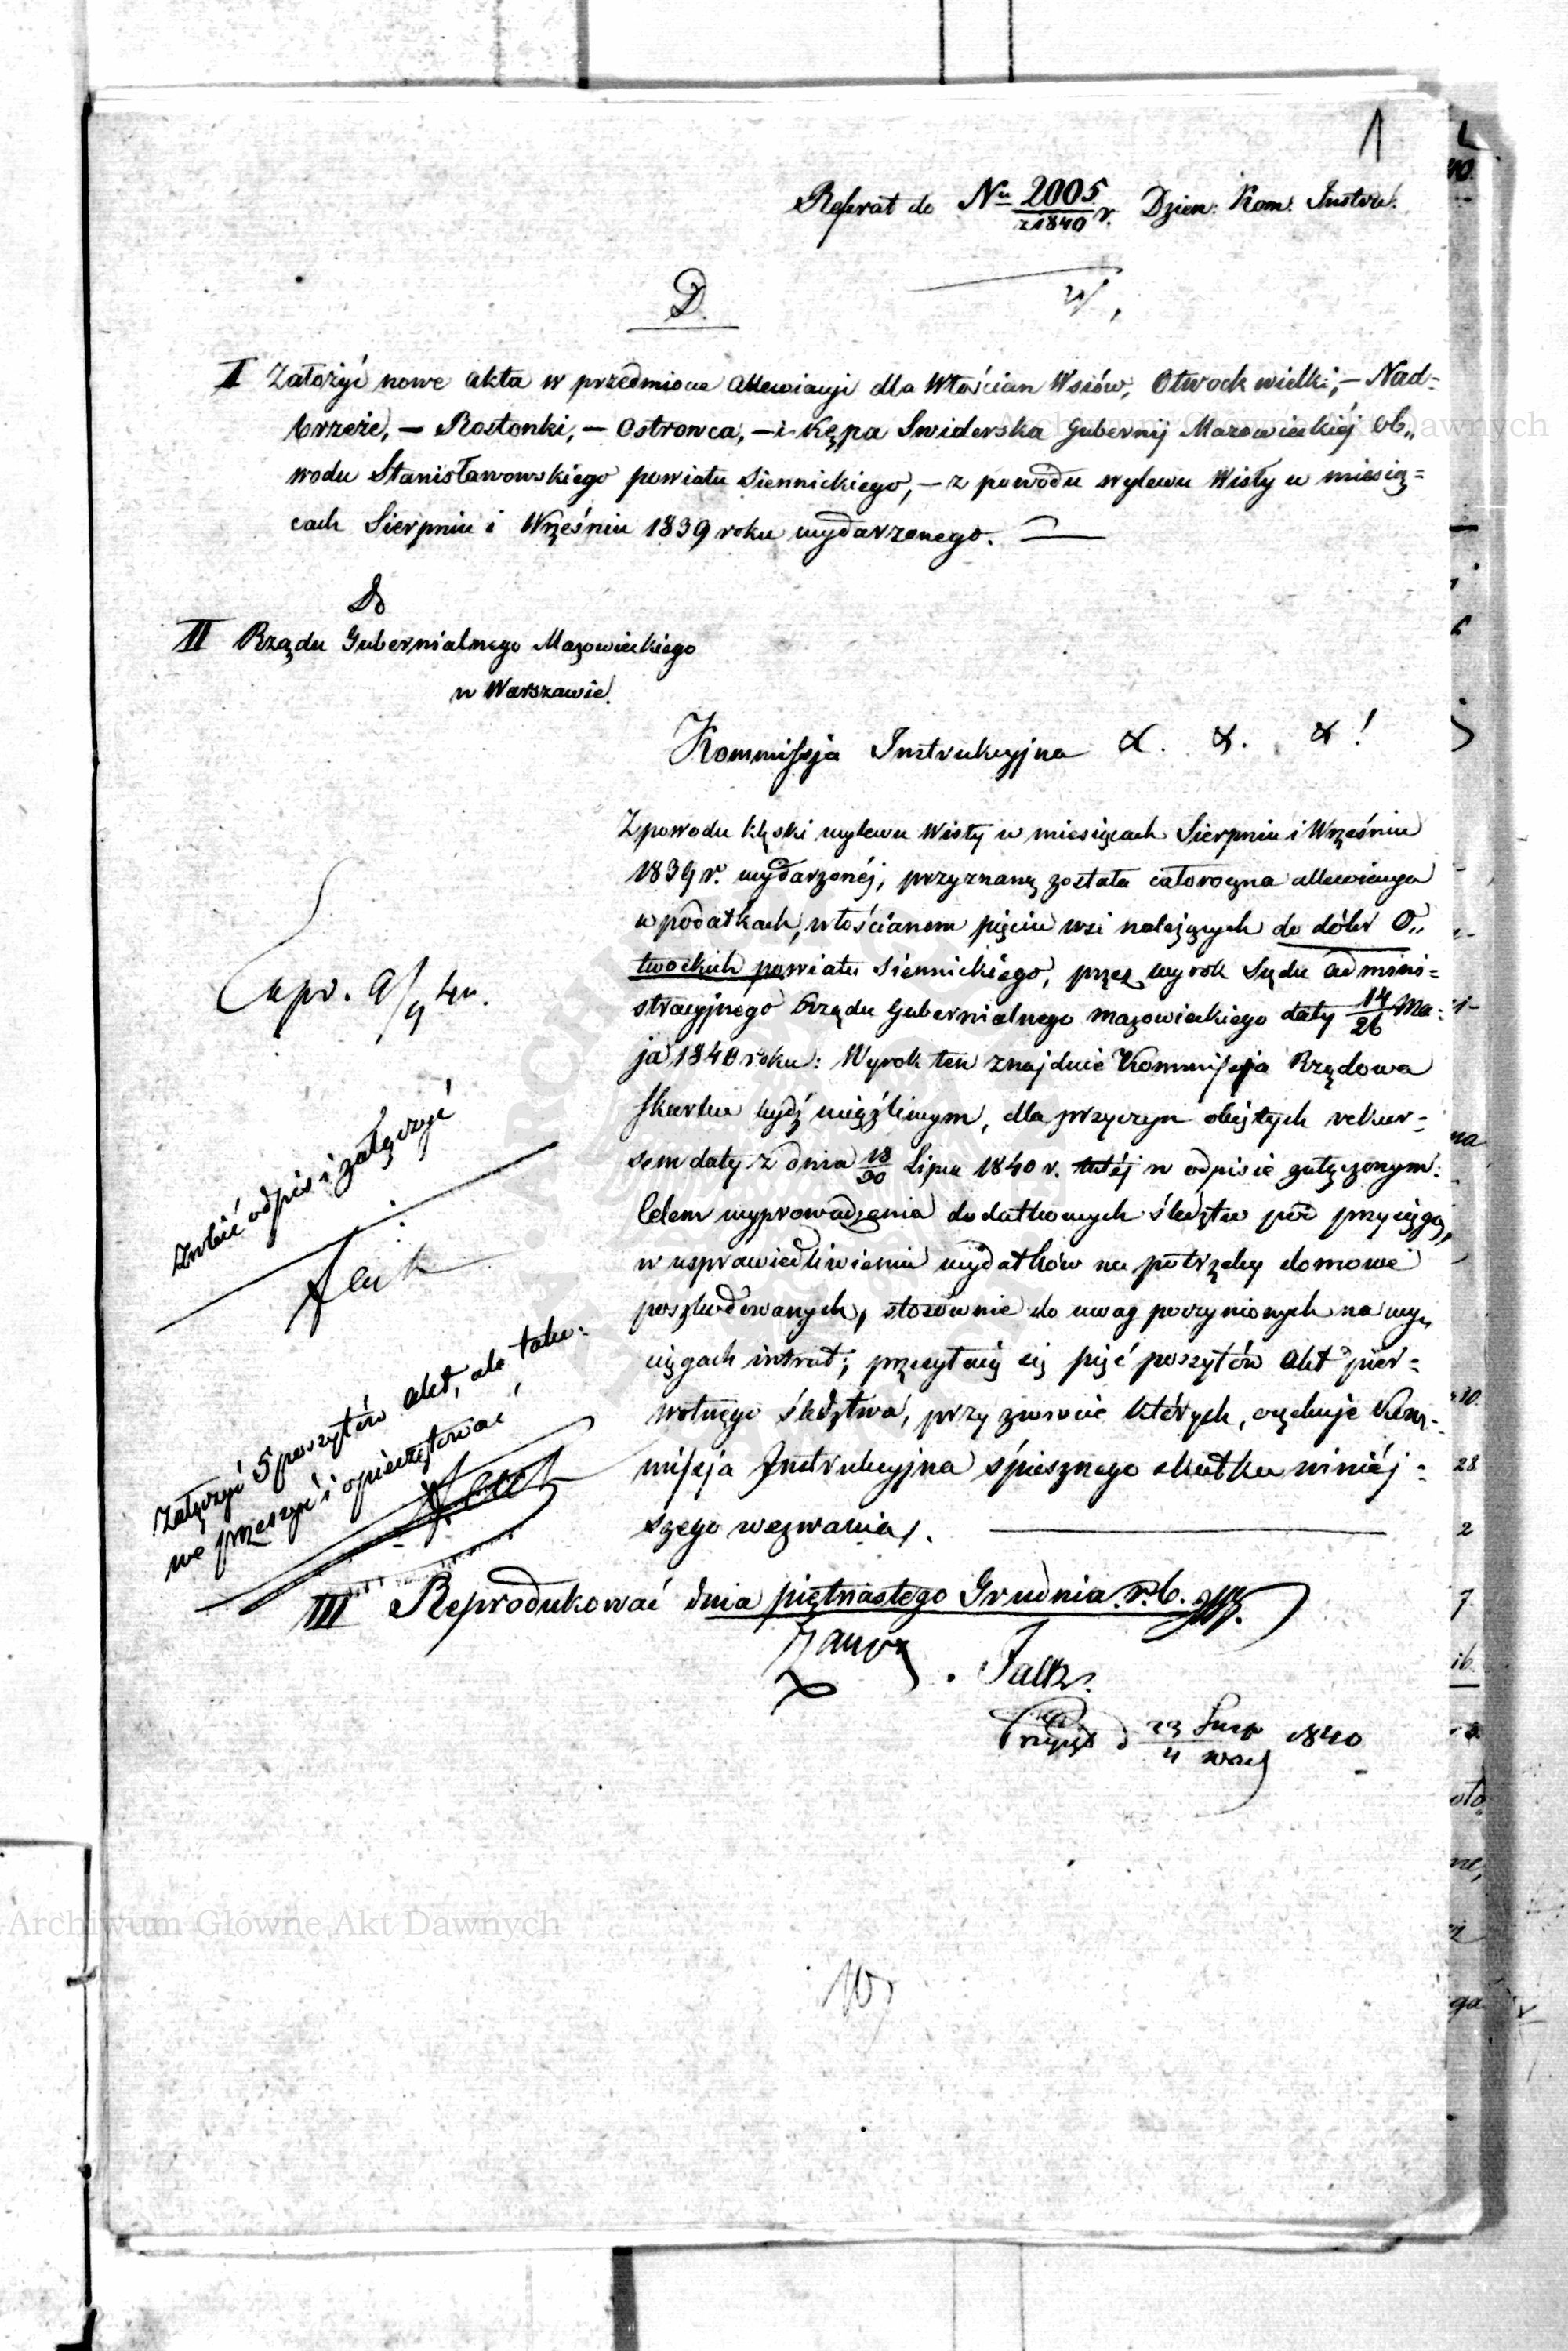 1
Referat do Nu 2005/z 1840 r. Dzien: Kom. Instru.
D.
I Założyć nowe akta w przedmiocie allewiacyi dla Włościan Wsiów, Otwock wielki, — Nad=
brzeże, — Rostonki, — Ostrowca, — i Kępa Swiderska Gubernij Mazowieckiéj Ob„
wodu Stanisławowskiego powiatu Siennickiego, — z powodu wylewu Wisły w miesią=
cach Sierpniu i Wrześniu 1839 roku wydarzonego. —
Do
II Rządu Gubernialnego Mazowieckiego
w Warszawie.
Kommissja Instrukcyjna &. &. &!
Z powodu klęski wylewu Wisły w miesiącach Sierpniu i Wrześniu
1839 r. wydarzonéj, przyznaną została całoroczna allewiacya
w podatkach, włościanom pięciu wsi należących do dóbr O„
twockich powiatu Siennickiego, przez wyrok Sądu admini=
stracyjnego Rządu Gubernialnego mazowieckiego daty 14/26 Ma=
ja 1840 roku: Wyrok ten znajduie Kommissja Rządowa
Skarbu bydź uciążliwym, dla przyczyn objętych rekur=
sem daty z dnia 18/30 Lipca 1840 r. tutéj w odpisie załączonym:
Celem wyprowadzenia dodatkowych śledztw pod przysięgą,
w usprawiedliwieniu wydatków na potrzeby domowe
poszkodowanych, stosownie do uwag poczynionych na wy„
ciągach intrat; przesyłaią się pięć poszytów akt pier=
wotnego śledztwa, przy zwrocie których, oczekuje Kom=
missja Instrukcyjna śpiesznego skutku niniéj=
szego wezwania.
III Reprodukować dnia piętnastego Grudnia r. b.
Falk.
Przyjęt d 23 Sierp/4 wrześ 1840
Expr. 9/9 40.
Zrobić odpis i załączyć
Falk
Załączyć 5 poszytów akt, ale tako=
we przeszyć i opieczętować
Falk
Archiwum Główne Akt Dawnych
Archiwum Główne Akt Dawnych